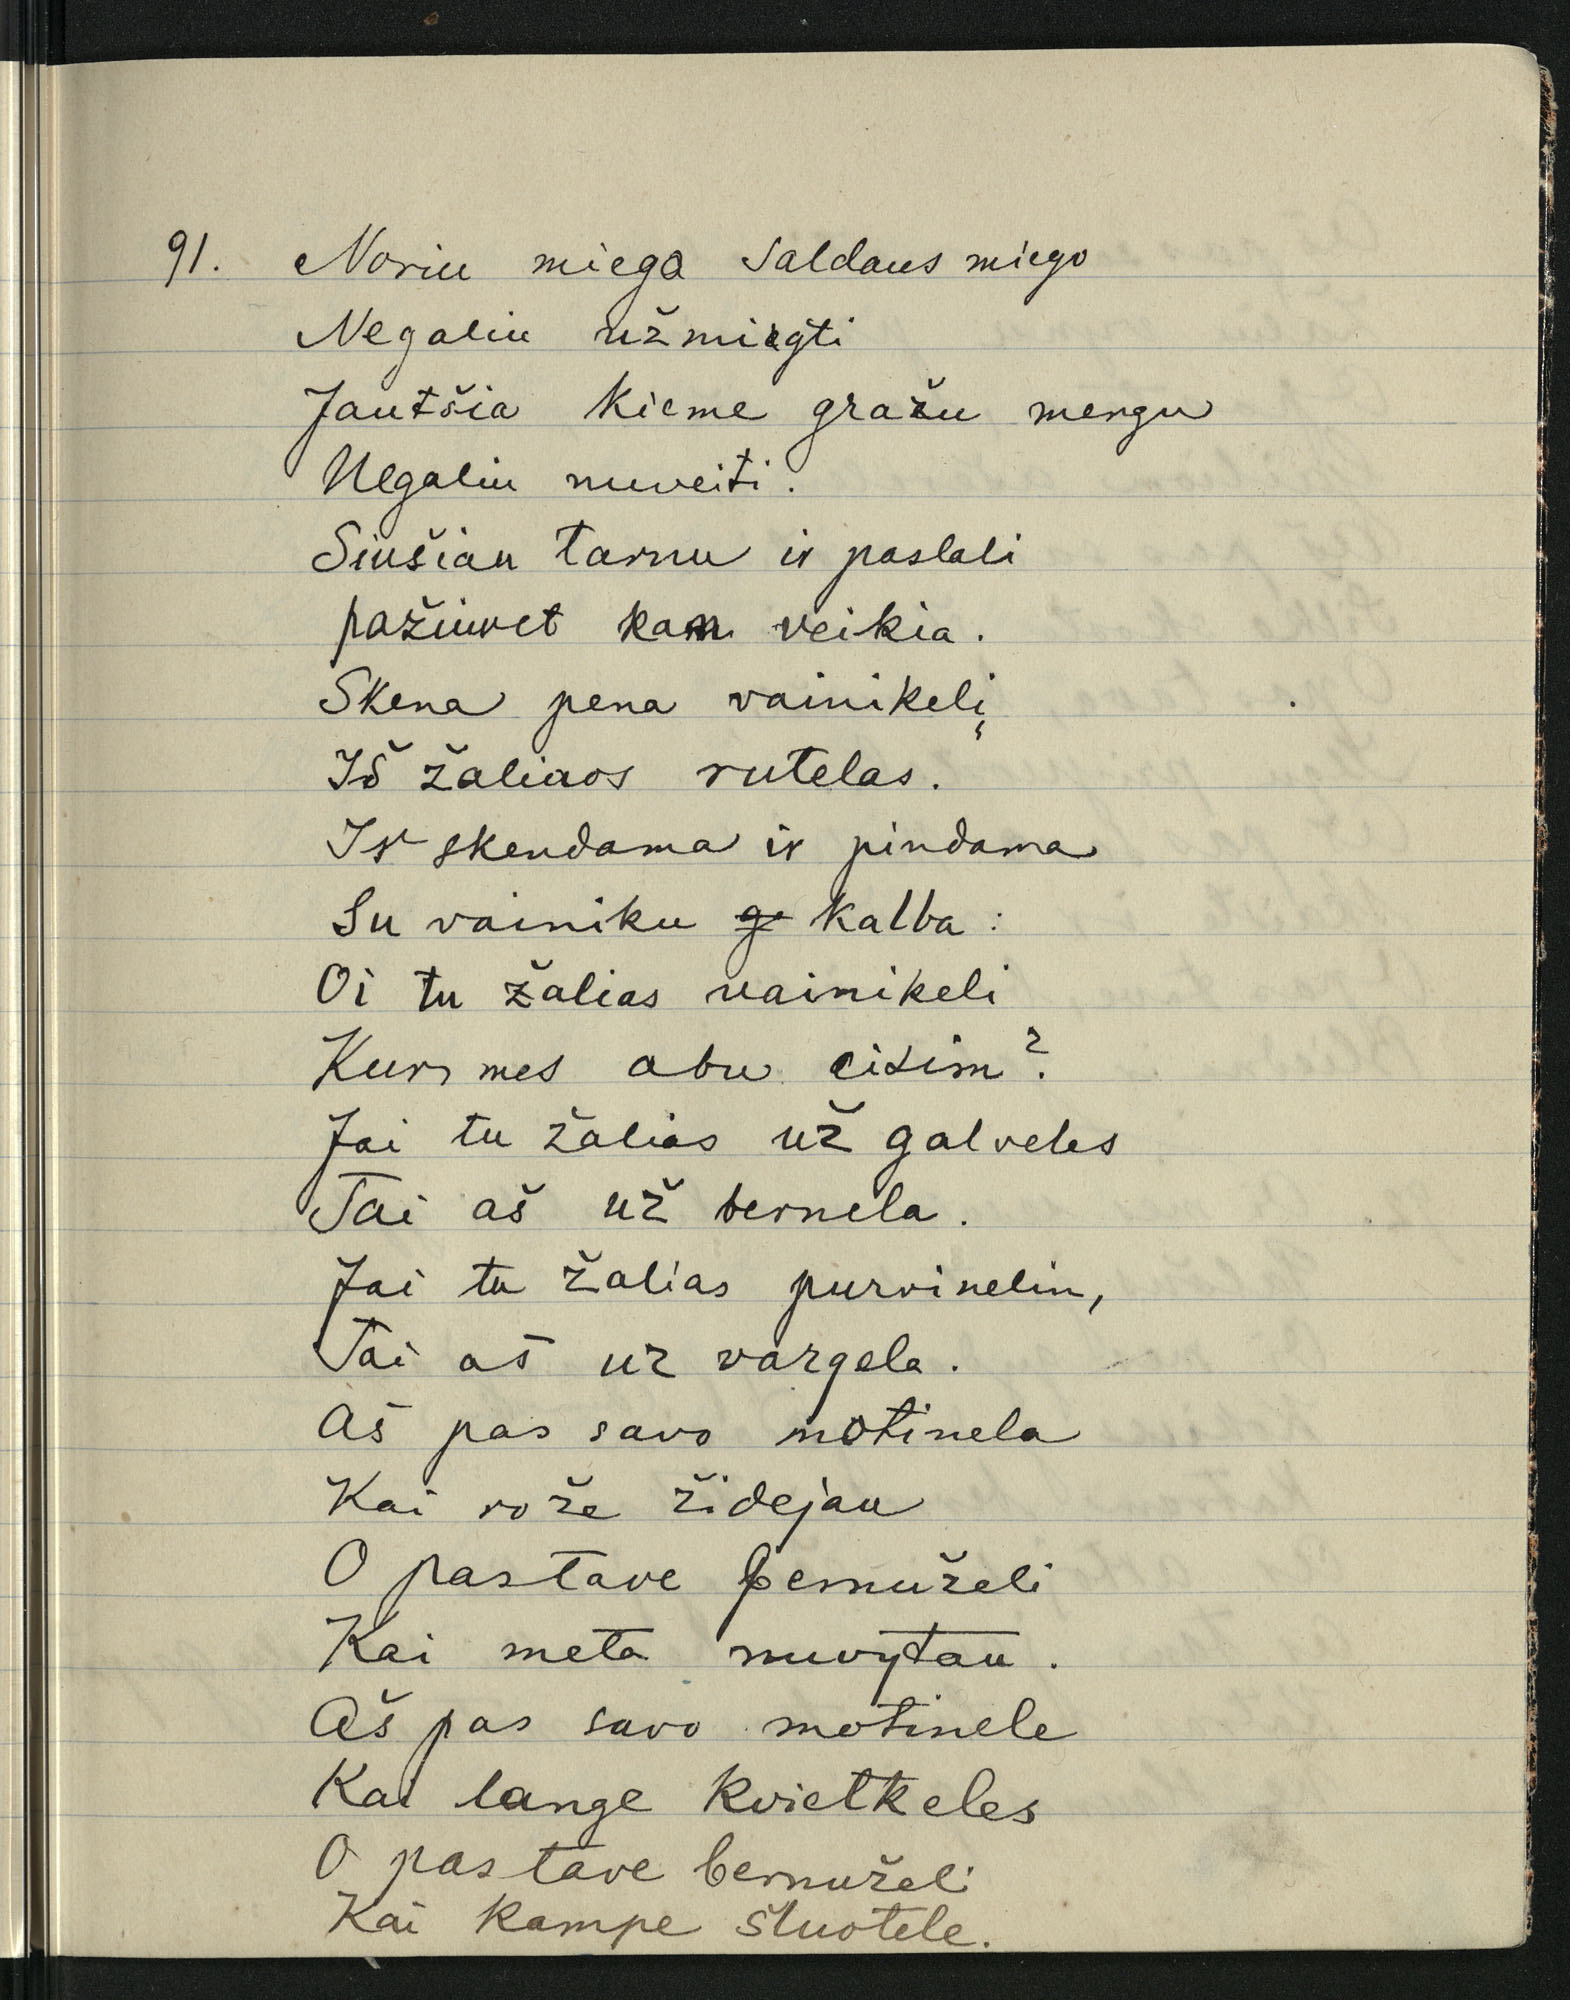 91. Noriu miego saldaus miego
Negaliu užmigti
Jautšia kieme gražu mergu
Negaliu nuveiti.
Siušiau tarnu ir paslali
pažiuret kan veikia.
Skena pena vainikelį
Iš žaliaos rutelas.
Ir skendama ir pindama
Su vainiku kalba:
Oi tu žalias vainikeli
Kur mes abu eisim?
Jai tu žalias už galveles
Tai aš už bernela.
Jai tu žalias purvinelin,
Tai aš uz vargela.
Aš pas savo motinela
Kai rože židejau
O pas tave bernuželi
Kai meta nuvytau.
Aš pas savo motinele
Kai lange kvietkeles
O pas tave bernuželi
Kai kampe šluotele.